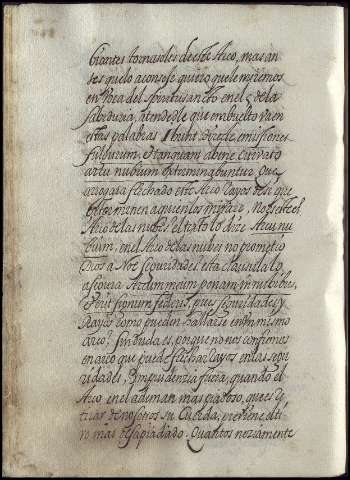 biantes tornasoles de este Arco, mas an
tes que lo aconseje quiero que le miremos
en boca del spiritu sancto en el 5 de la
sabiduria, atendedle que embuelto va en
estas palabras Ibunt directe emissiones
fulgurum, et tanquam a bene curvato
arcu nubium exterminabuntur. Que
arroxara flechado este Arco Rayos de si que
exterminen a quien los mirare, No es este el
Arco de las nubes? el texto lo dize Arcu nu
bium, en el Arco de las nubes no prometio
Dios a Noe seguridades? esta clausula lo
asegura Arcum meum ponam in nubibus,
et erit signum federis, pues seguridades y
Rayos como pueden hallarse en un mismo
arco? sin duda es, porque no nos confiemos
en arco que puede flechar Rayos en las segu
ridades, Imprudencia fuera, quando el
Arco en el ademan mas piadoso, que es el
tirar de nosotros su Cuerda, previene el ti
ro mas desapiadado. Quantos neciamente